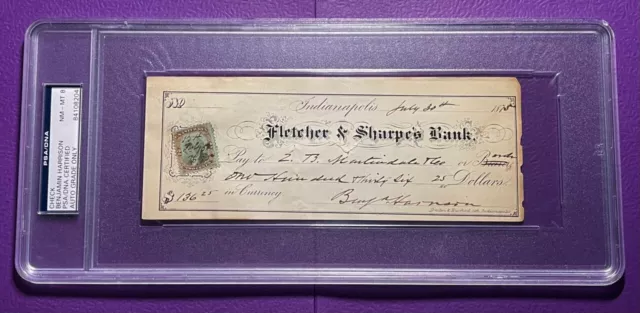 PSA/DNA
CHECK
BENJAMIN HARRISON
PSA/DNA CERTIFIED
AUTO GRADE ONLY
NM - MT 8
84108204
Indianapolis July 30th 1875
Fletcher & Sharpe's Bank.
Pay to E. B. Martindale & Co or order
One Hundred Thirty Six 25 Dollars
$136.25 in Currency Benj Harrison